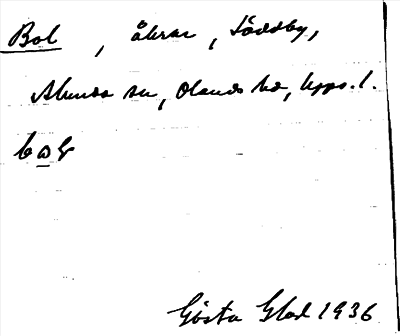 Bol, åkrar, Söderby,
Alunda sn, Olands hd, Upps. l.
bol
Gösta Glad 1936